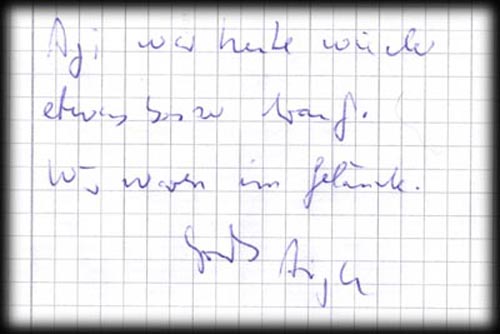 Agi war heute wieder
etwas besser drauf.
Wir waren im Gelände.
Gruß